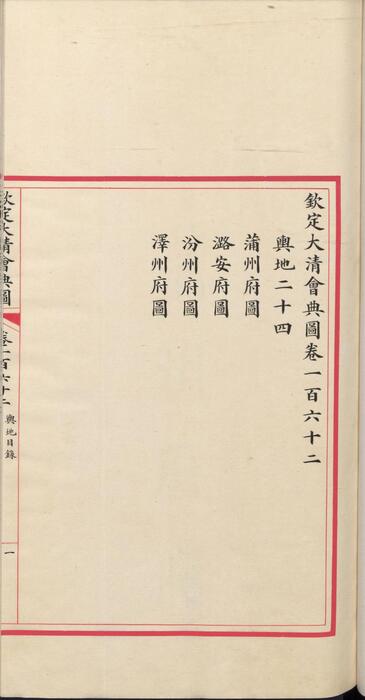 欽定大清會典圖卷一百六十二
輿地二十四
蒲州府圖
潞安府圖
汾州府圖
澤州府圖
欽定大清會典圖
卷一百六十二
輿地目錄
一